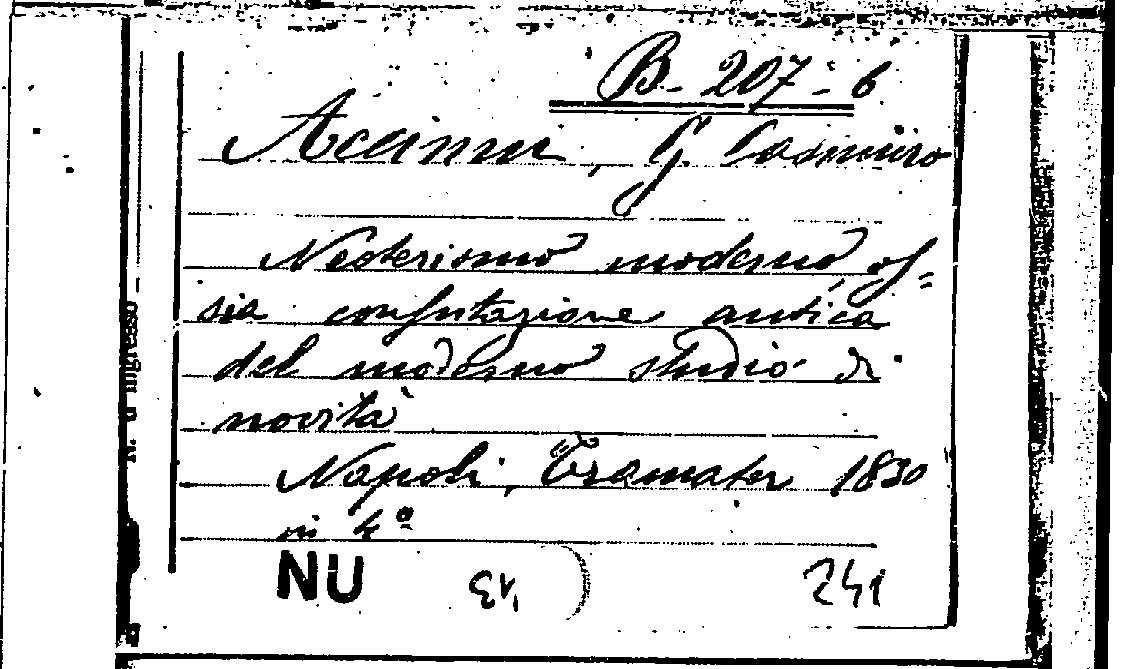 B. 207-6
Accinni, G. Casimiro
Neoterismo moderno os=
sia confutazione antica
del moderno studio di
novità
Napoli, Tramater 1830
in 4º
NU 241
N. d'ingresso